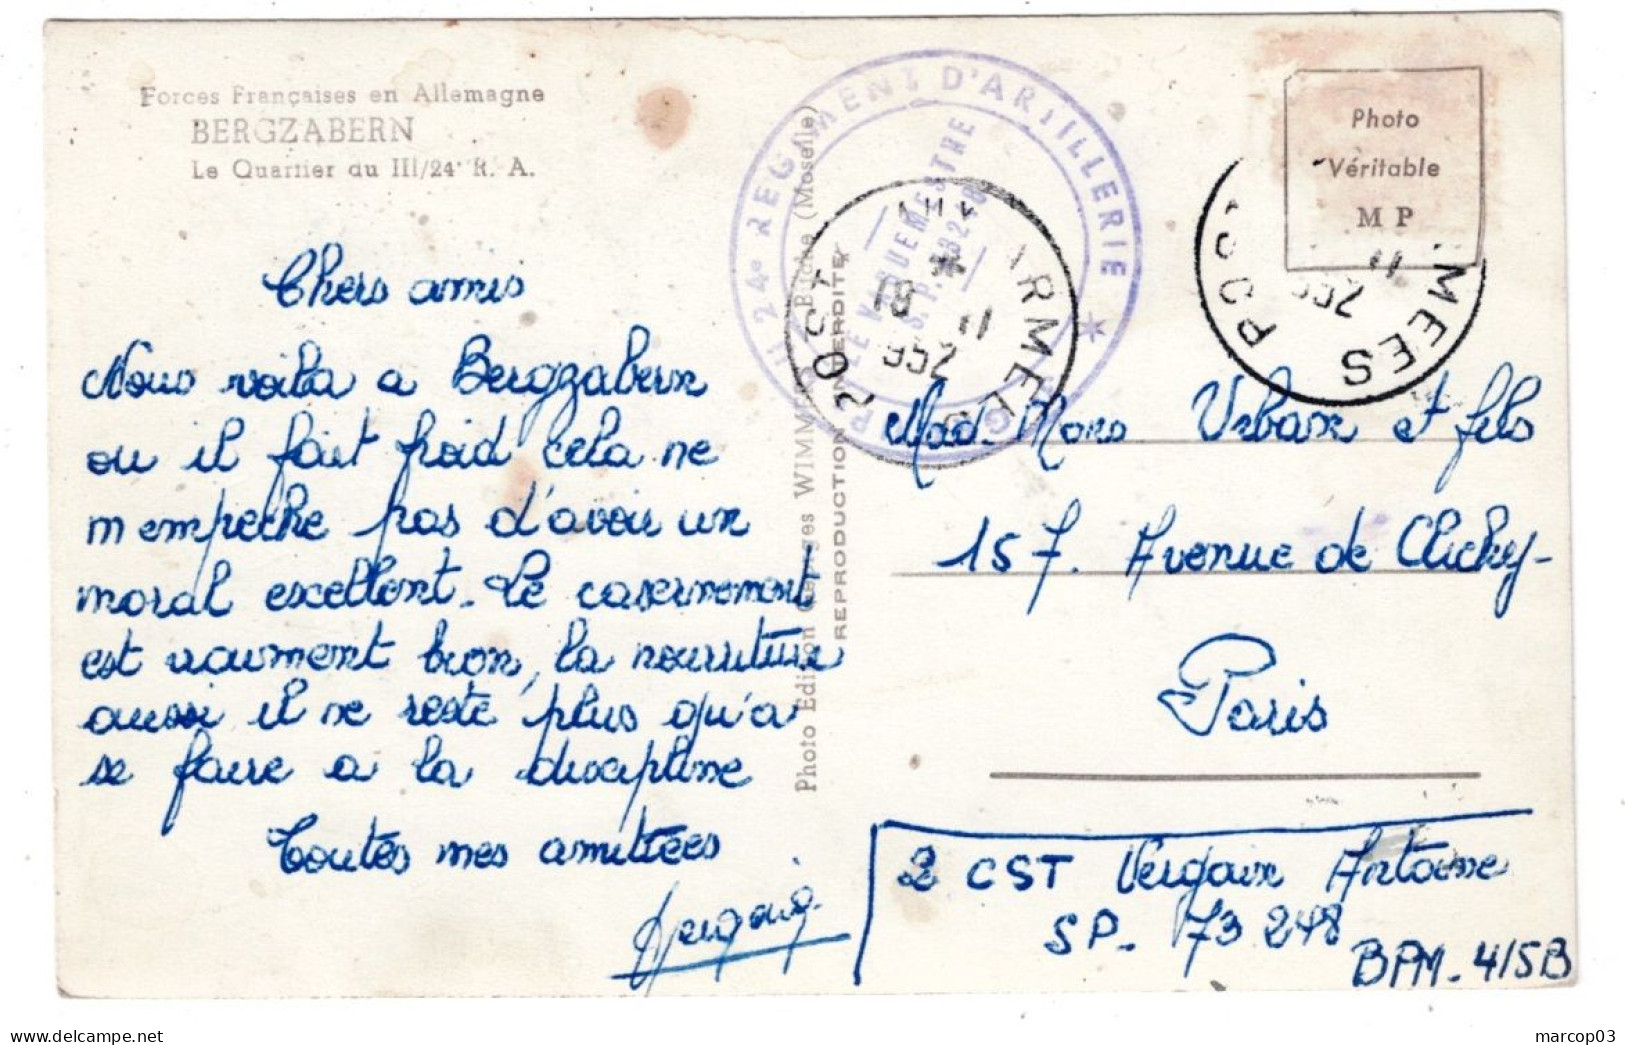 Forces Françaises en Allemagne
BERGZABERN
Le Quartier du III/24e R. A.
Chers amis
Nous voila a Bergzabern
ou il fait froid cela ne
m empeche pas d'avoir un
moral excellent. Le casernement
est vraiment bon, la nourriture
aussi il ne reste plus qu'a
se faire a la discipline
Toutes mes amitiées
Photo Edition Georges WIMMER Bitche (Moselle)
REPRODUCTION INTERDITE
24e REGIMENT D'ARTILLERIE
LE VAGUEMESTRE
S.P. 73248
POSTE AUX ARMEES
18
11
952
Photo
Véritable
M P
POSTE ARMEES
11
952
Mad. Mons Urbain et fils
157. Avenue de Clichy-
Paris
2 CST Vergain Antoine
SP. 73 248
BPM. 415B
marcop03